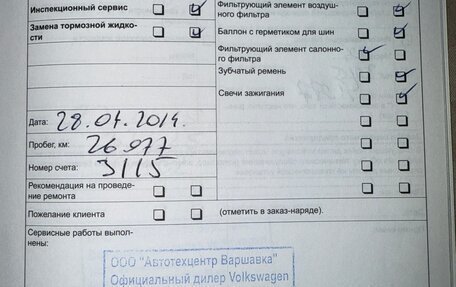 Инспекционный сервис
Замена тормозной жидко-
сти
Фильтрующий элемент воздуш-
ного фильтра
Баллон с герметиком для шин
Фильтрующий элемент салонно-
го фильтра
Зубчатый ремень
Свечи зажигания
Дата: 28.04.2014.
Пробег, км: 26 977
Номер счета: 3115
Рекомендация на проведе-
ние ремонта
Пожелание клиента
(отметить в заказ-наряде).
Сервисные работы выпол-
нены:
ООО "Автотехцентр Варшавка"
Официальный дилер Volkswagen